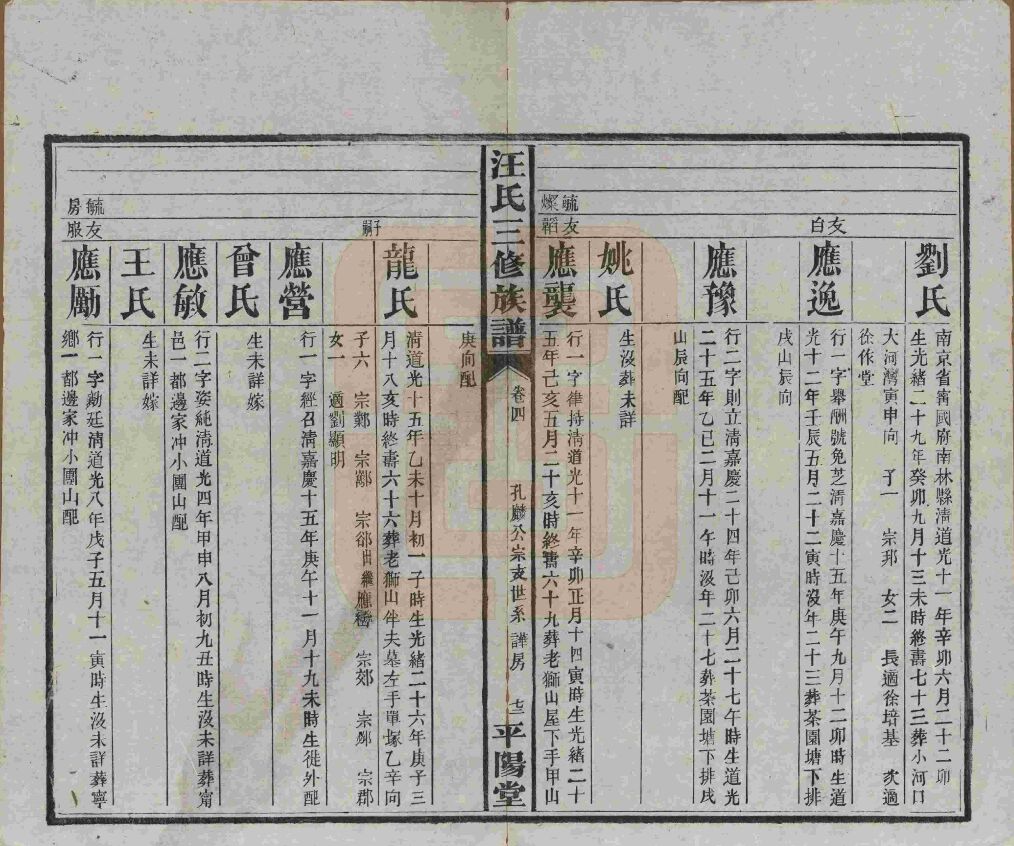 劉氏
南京省甯國府南林縣清道光十一年辛卯六月二十二卯
生光緒二十九年癸卯九月十三未時終壽七十三葬小河口
大河灣寅申向 子一 宗邦 女二 長適徐培基 次適
徐休堂
友白
應逸
行一字舉酬號免芝清嘉慶十五年庚午九月十二卯時生道
光十二年壬辰五月二十二寅時沒年二十三葬茶園塘下排
戌山辰向
應豫
行二字則立清嘉慶二十四年己卯六月二十七午時生道光
二十五年乙巳二月十一午時沒年二十七葬茶園塘下排戌
山辰向配
姚氏
生沒葬未詳
毓燦
友韜
應襲
行一字律持清道光十一年辛卯正月十四寅時生光緒二十
五年己亥五月二十亥時終壽六十九葬老獅山屋下手甲山
庚向配
汪氏三修族譜
卷四
孔麟公宗支世系 譁房
七三
平陽堂
龍氏
清道光十五年乙未十月初一子時生光緒二十六年庚子三
月十八亥時終壽六十六葬老獅山伴夫墓左手單塚乙辛向
子六 宗鄭 宗鄢 宗郤出繼應 宗郊 宗 宗郡
女一 適劉顯明
子嗣
應營
行一字經召清嘉慶十五年庚午十一月十九未時生徙外配
曾氏
生未詳嫁
應敏
行二字姿純清道光四年甲申八月初九丑時生沒未詳葬甯
邑一都邊家冲小團山配
王氏
生未詳嫁
毓房
友服
應勵
行一字勷廷清道光八年戊子五月十一寅時生沒未詳葬寧
鄉一都邊家冲小團山配